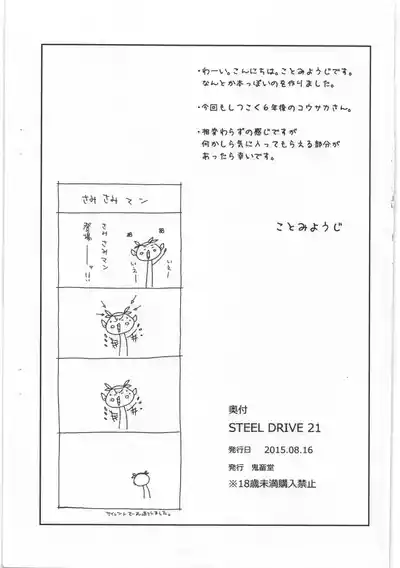 ・わーい。こんにちは。ことみようじです。
なんとか本っぽいのを作りました。
・今回もしつこく6年後のコウサカさん。
・相変わらずの感じですが
何かしら気に入ってもらえる部分が
あったら幸いです。
ことみようじ
さみさみマン
さみさみマン
登場
いえー
いえー
奥付
STEEL DRIVE 21
発行日 2015.08.16
発行 鬼畜堂
※18歳未満購入禁止